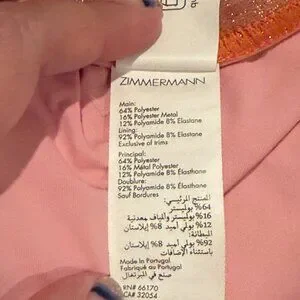 ZIMMERMANN
Main:
64% Polyester
16% Polyester Metal
12% Polyamide 8% Elastane
Lining:
92% Polyamide 8% Elastane
Exclusive of trims
Principal:
64% Polyester
16% Metal Polyester
12% Polyamide 8% Elasthane
Doublure:
92% Polyamide 8% Elasthane
Sauf Bordures
المنتج الرئيسي:
64% بوليستر
16% بوليستر وألياف معدنية
12% بولي أميد 8% إيلاستان
البطانة:
92% بولي أميد 8% إيلاستان
باستثناء الإضافات
Made In Portugal
Fabriqué au Portugal
صنع في البرتغال
RN# 66170
CA# 32054